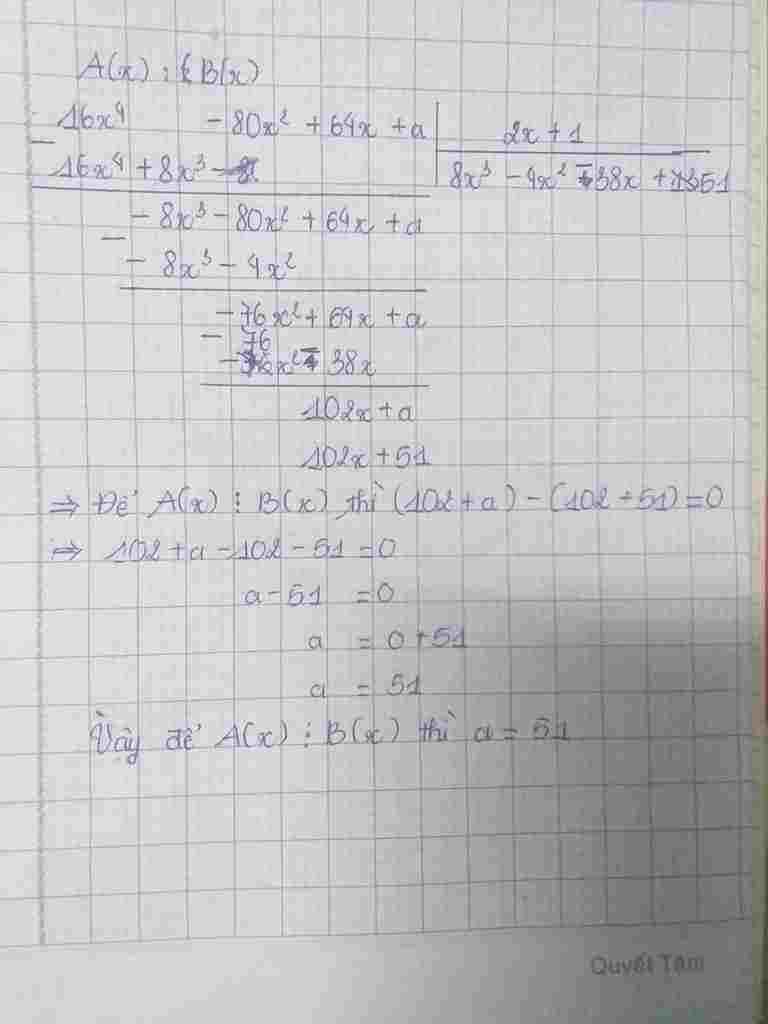 A(x) : B(x)
16x⁴ - 80x² + 64x + a | 2x + 1
- 16x⁴ + 8x³ | 8x³ - 4x² - 38x + 51
- 8x³ - 80x² + 64x + a
- - 8x³ - 4x²
- 76x² + 64x + a
- - 76x² - 38x
102x + a
102x + 51
⇒ Để A(x) ⋮ B(x) thì (102 + a) - (102 + 51) = 0
⇒ 102 + a - 102 - 51 = 0
a - 51 = 0
a = 0 + 51
a = 51
Vậy để A(x) ⋮ B(x) thì a = 51
Quyết Tâm